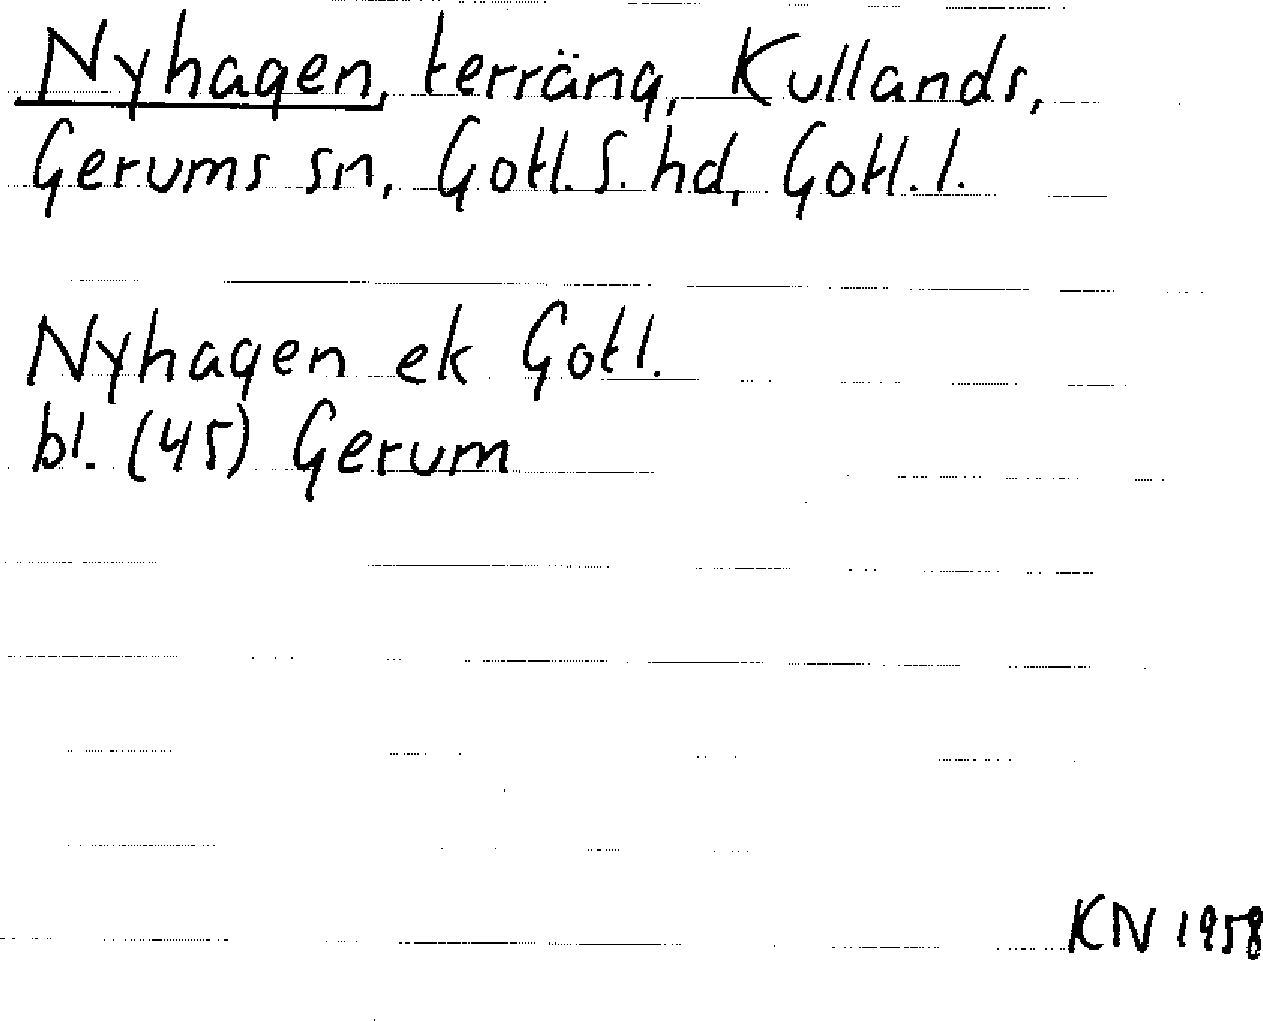 Nyhagen, terräng, Kullands,
Gerums sn, Gotl. S. hd, Gotl. l.
Nyhagen ek Gotl.
bl. (45) Gerum
KN 1958